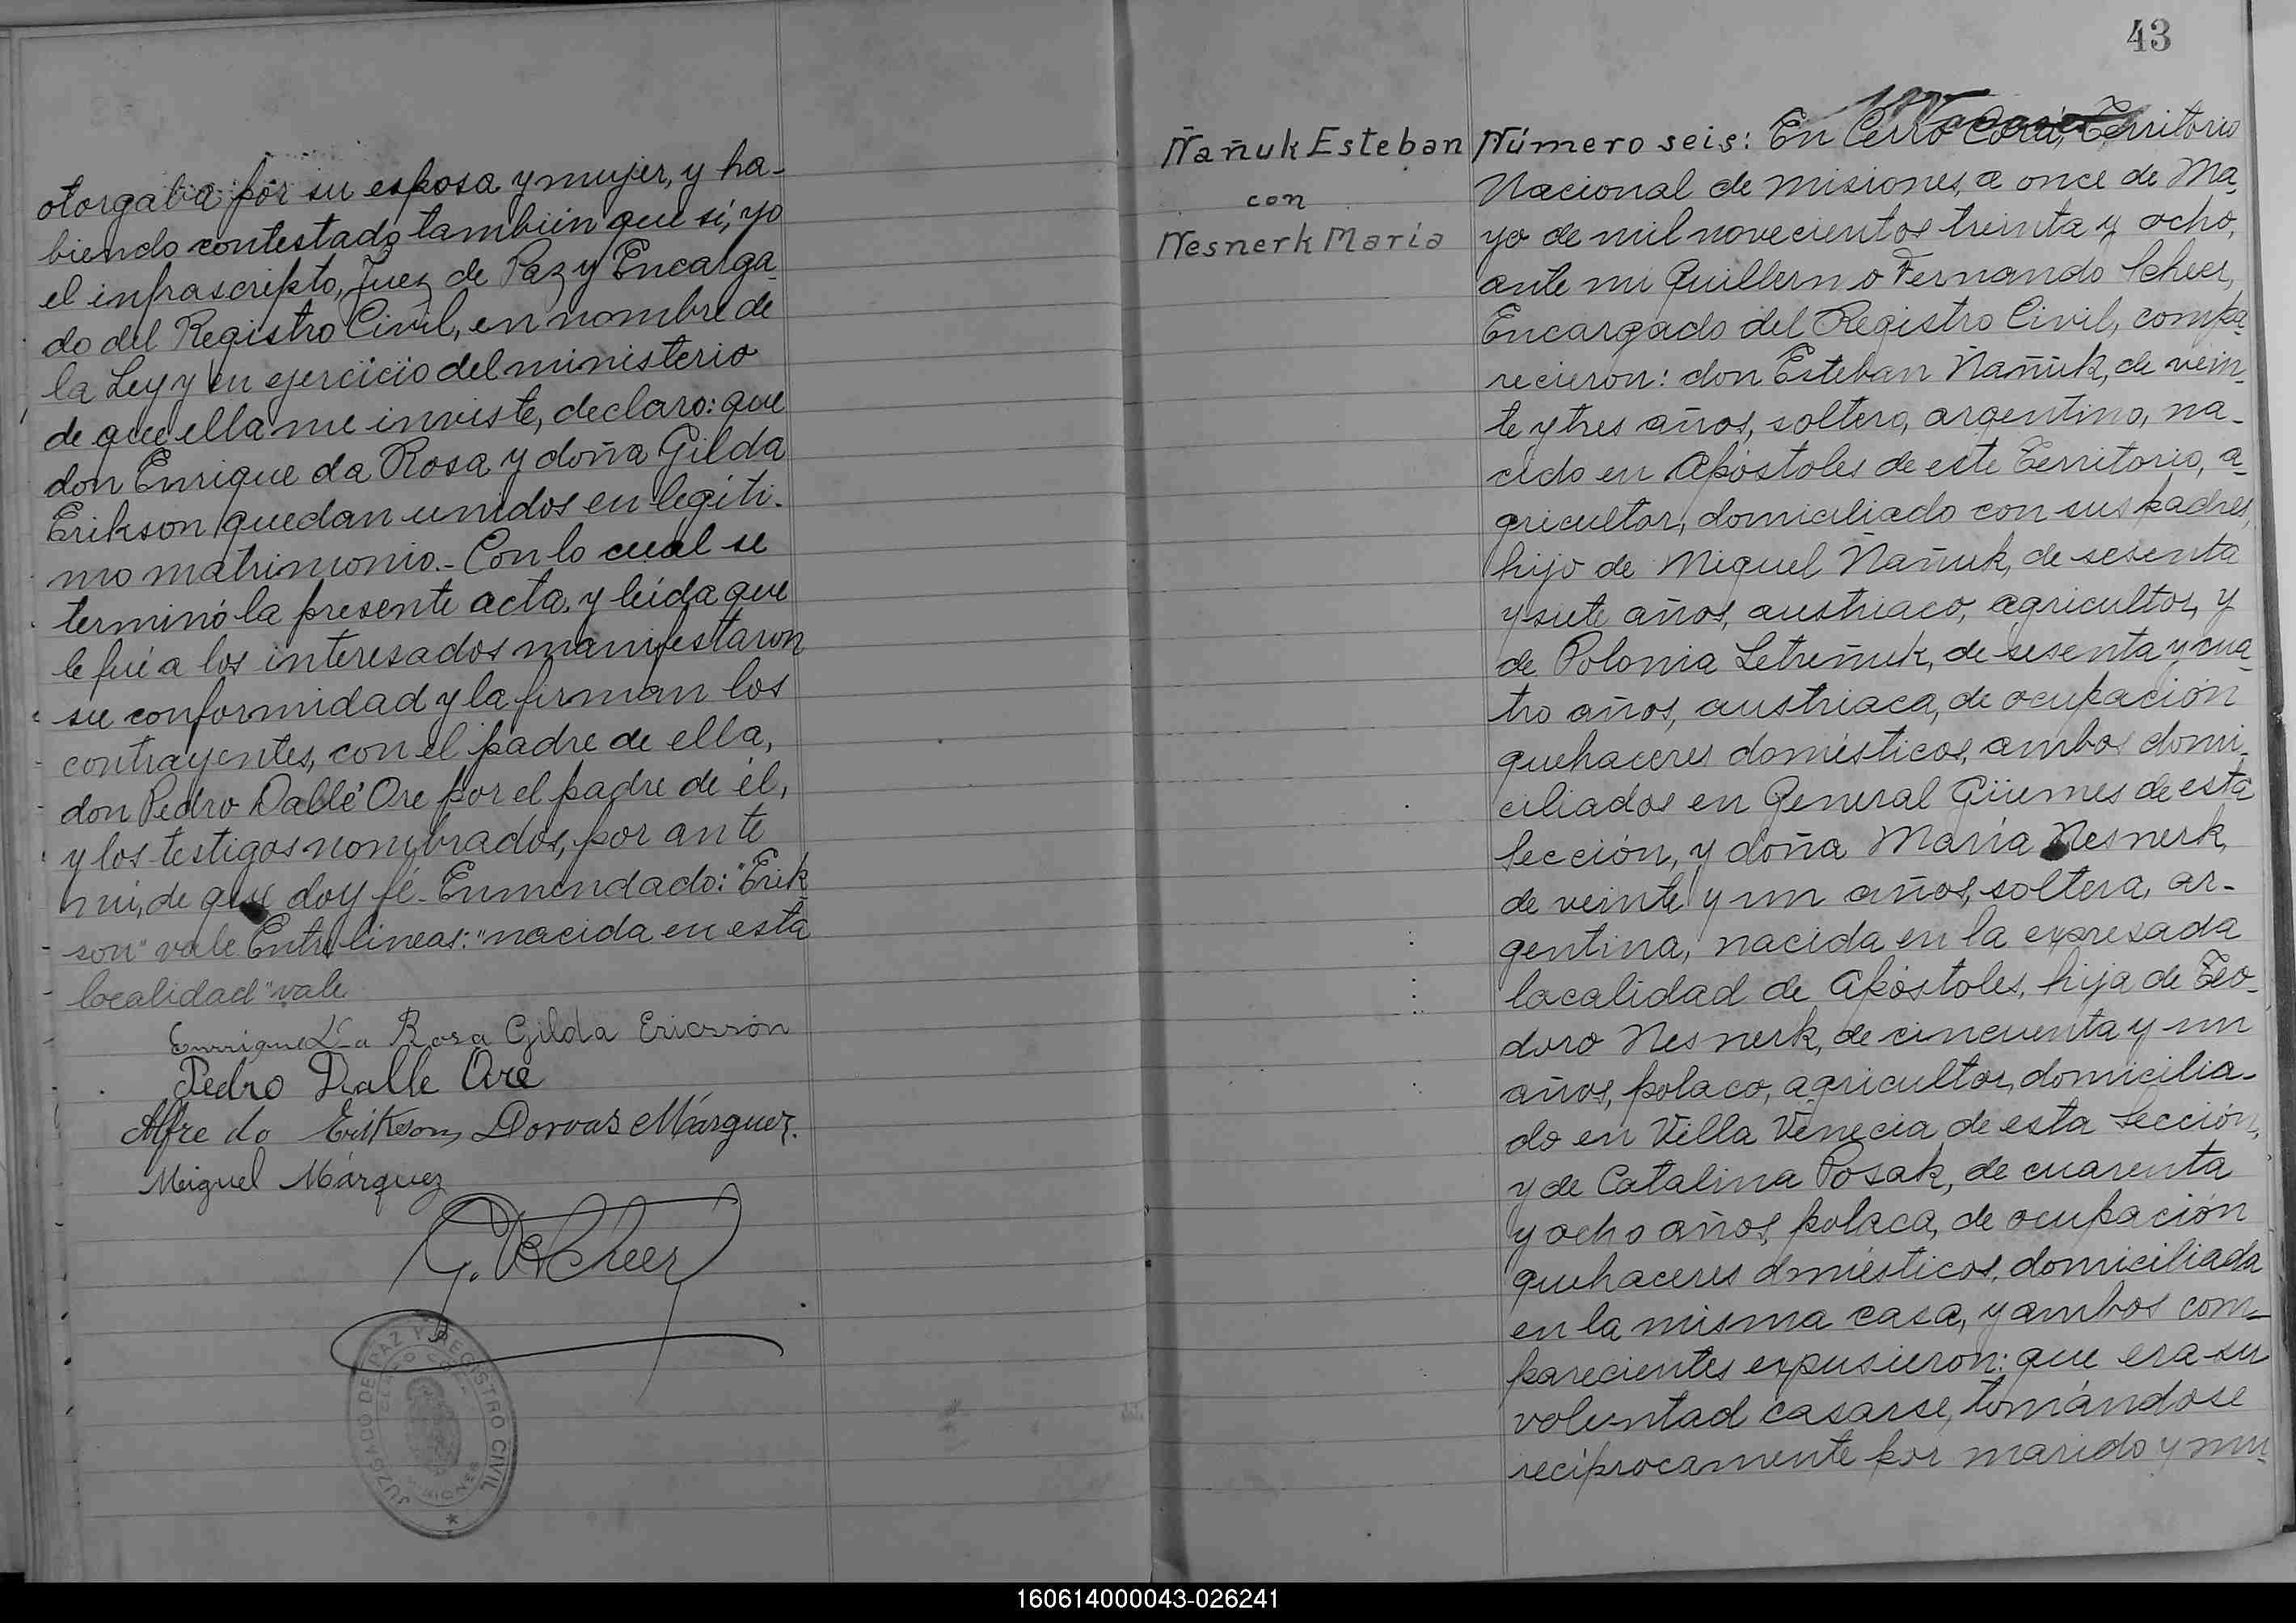 otorgaba por su esposa y mujer, y ha-
biendo contestado también que sí, yo
el infrascripto, Juez de Paz y Encarga-
do del Registro Civil, en nombre de
la Ley y en ejercicio del ministerio
de que ella me inviste, declaro: que
don Enrique da Rosa y doña Gilda
Erikson quedan unidos en legíti-
mo matrimonio.- Con lo cual se
terminó la presente acta, y leida que
le fué a los interesados manifestaron
su conformidad y la firman los
contrayentes, con el padre de ella,
don Pedro Dallé Ore por el padre de él,
y los testigos nombrados, por ante
mi, de que doy fé. Enmendado: "Erik
son" vale Entre lineas: "nacida en esta
localidad" vale
Enrrique Da Rosa Gilda Ericsson
Pedro Dalle Ore
Alfredo Erikson Dorvas Márquez.
Miguel Márquez
G. F. Scheer
JUZGADO DE PAZ Y REGISTRO CIVIL
CERRO CORÁ
MISIONES
43
Ñañuk Esteban
con
Nesnerk María
Número seis: En Cerro Corá, Territorio
Nacional de Misiones, a once de Ma-
yo de mil novecientos treinta y ocho,
ante mi Guillermo Fernando Scheer,
Encargado del Registro Civil, compa-
recieron: don Esteban Ñañuk, de vein-
te y tres años, soltero, argentino, na-
cido en Apóstoles de este Territorio, a-
gricultor, domiciliado con sus padres,
hijo de Miguel Ñañuk, de sesenta
y siete años, austriaco, agricultor, y
de Polonia Letreñuk, de sesenta y cua-
tro años, austriaca, de ocupación
quehaceres domésticos, ambos domi-
ciliados en General Güemes de esta
Sección, y doña María Nesnerk,
de veinte y un años, soltera, ar-
gentina, nacida en la expresada
localidad de Apóstoles, hija de Teo-
doro Nesnerk, de cincuenta y un
años, polaco, agricultor, domicilia-
do en Villa Venecia de esta Sección,
y de Catalina Posak, de cuarenta
y ocho años, polaca, de ocupación
quehaceres dmésticos, domiciliada
en la misma casa, y ambos com-
parecientes expusieron: que era su
voluntad casarse, tomándose
recíprocamente por marido y mu-
160614000043-026241